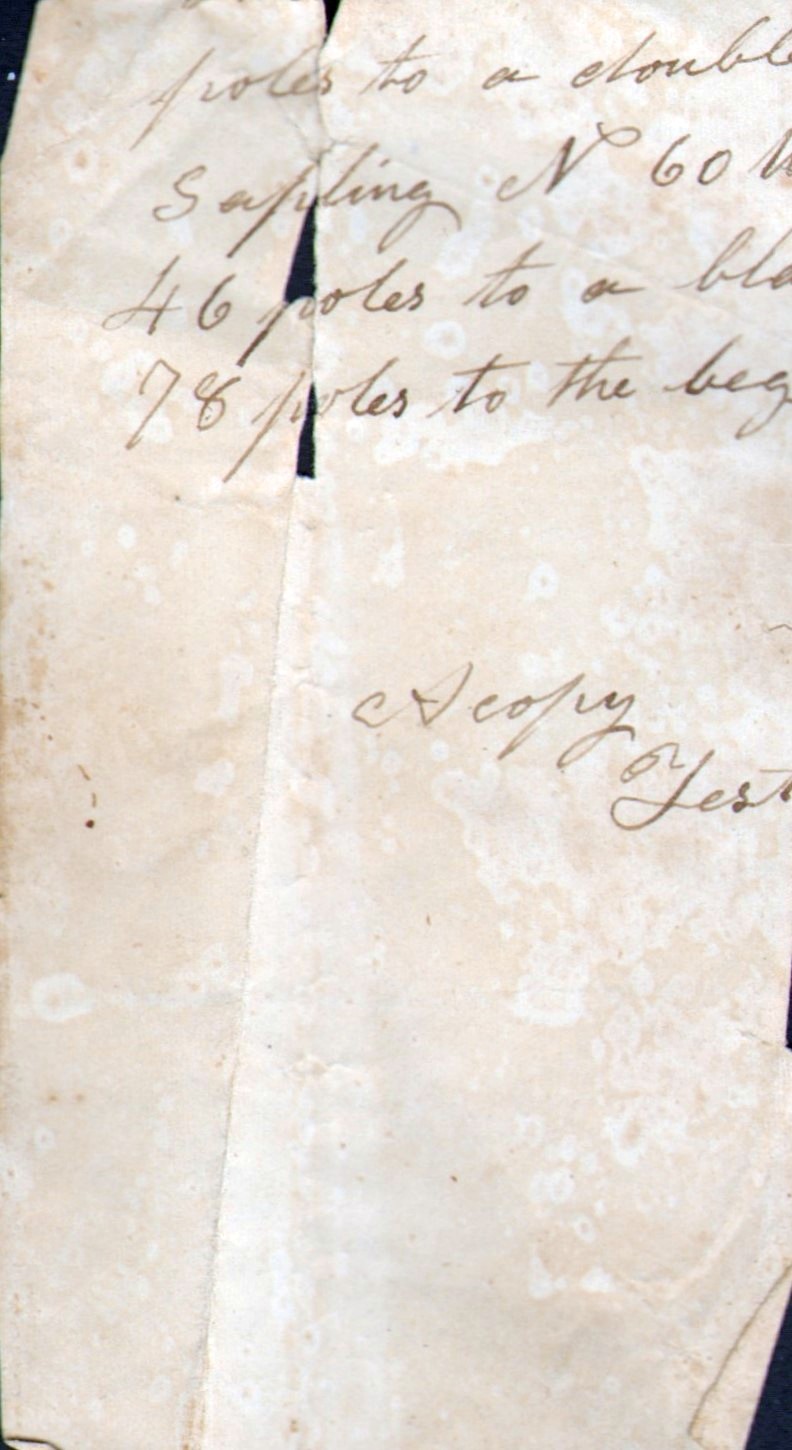 poles to a double
Sapling N 60 W
46 poles to a bla
78 poles to the beg
A copy
Test